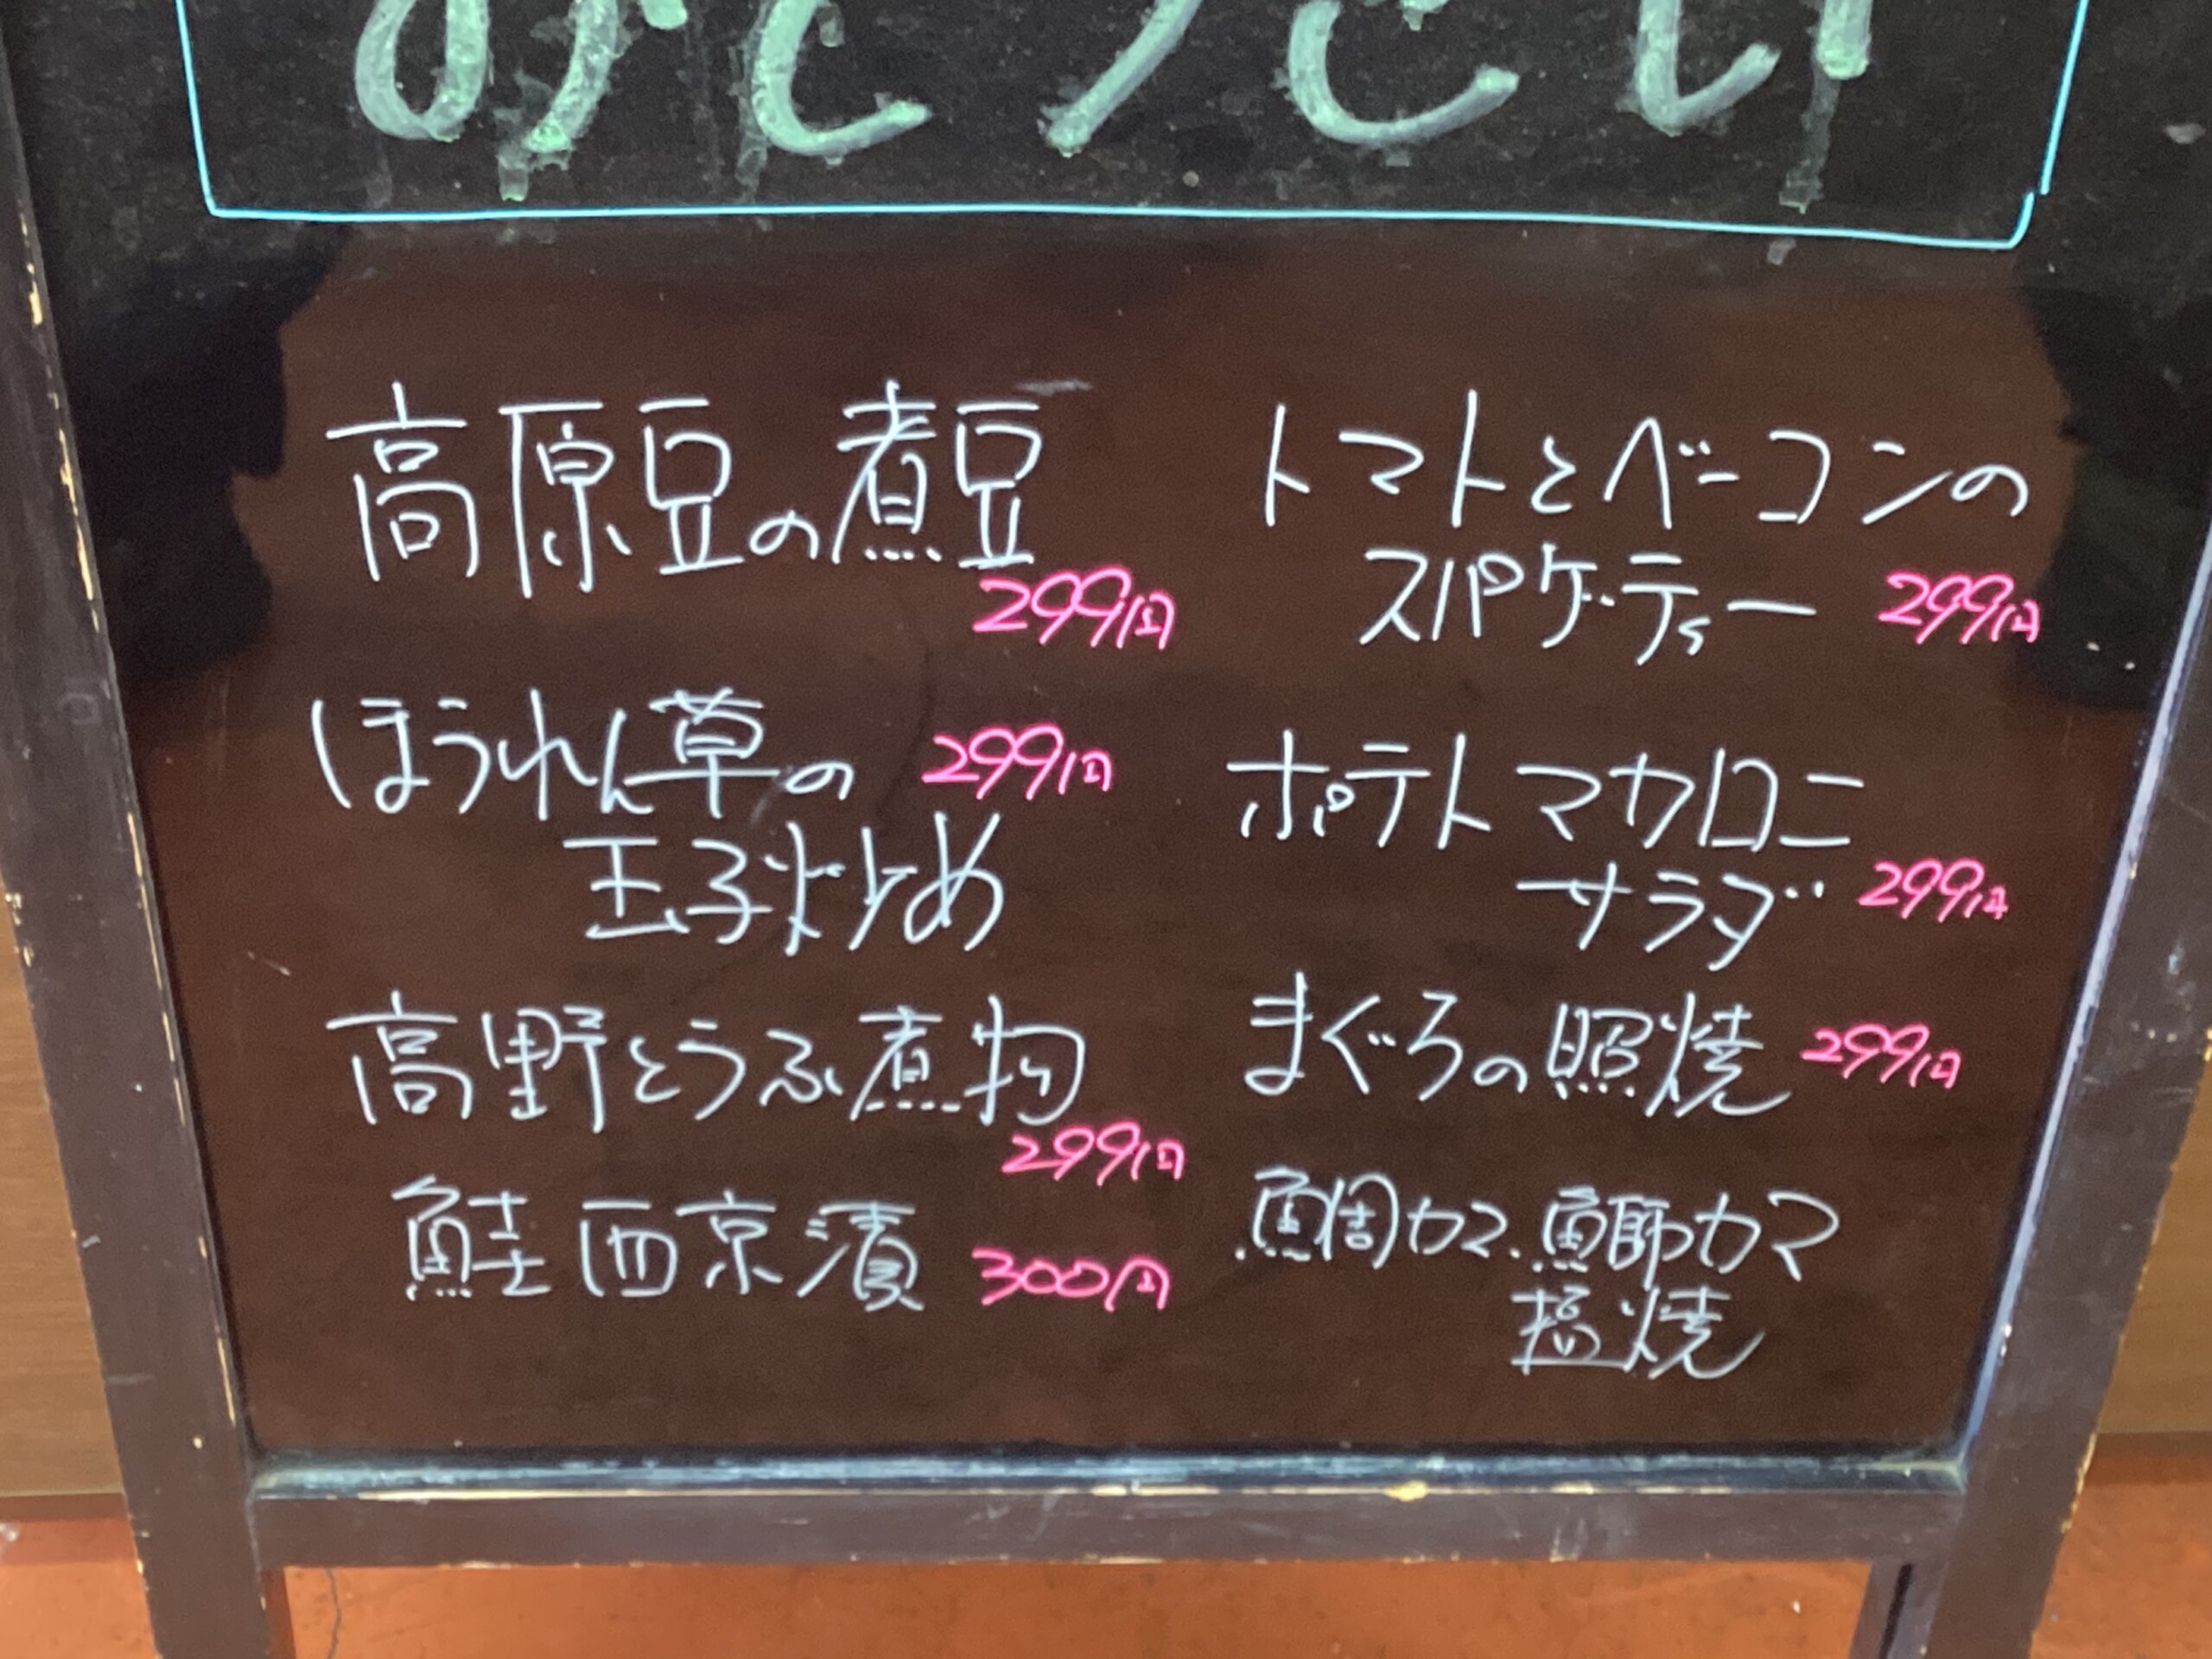 高原豆の煮豆
299円
ほうれん草の 299円
玉子炒め
高野とうふ煮物
299円
鮭西京漬 300円
トマトとベーコンの
スパゲティー 299円
ポテトマカロニ
サラダ 299円
まぐろの照焼 299円
鯛カマ.鰤カマ
塩焼